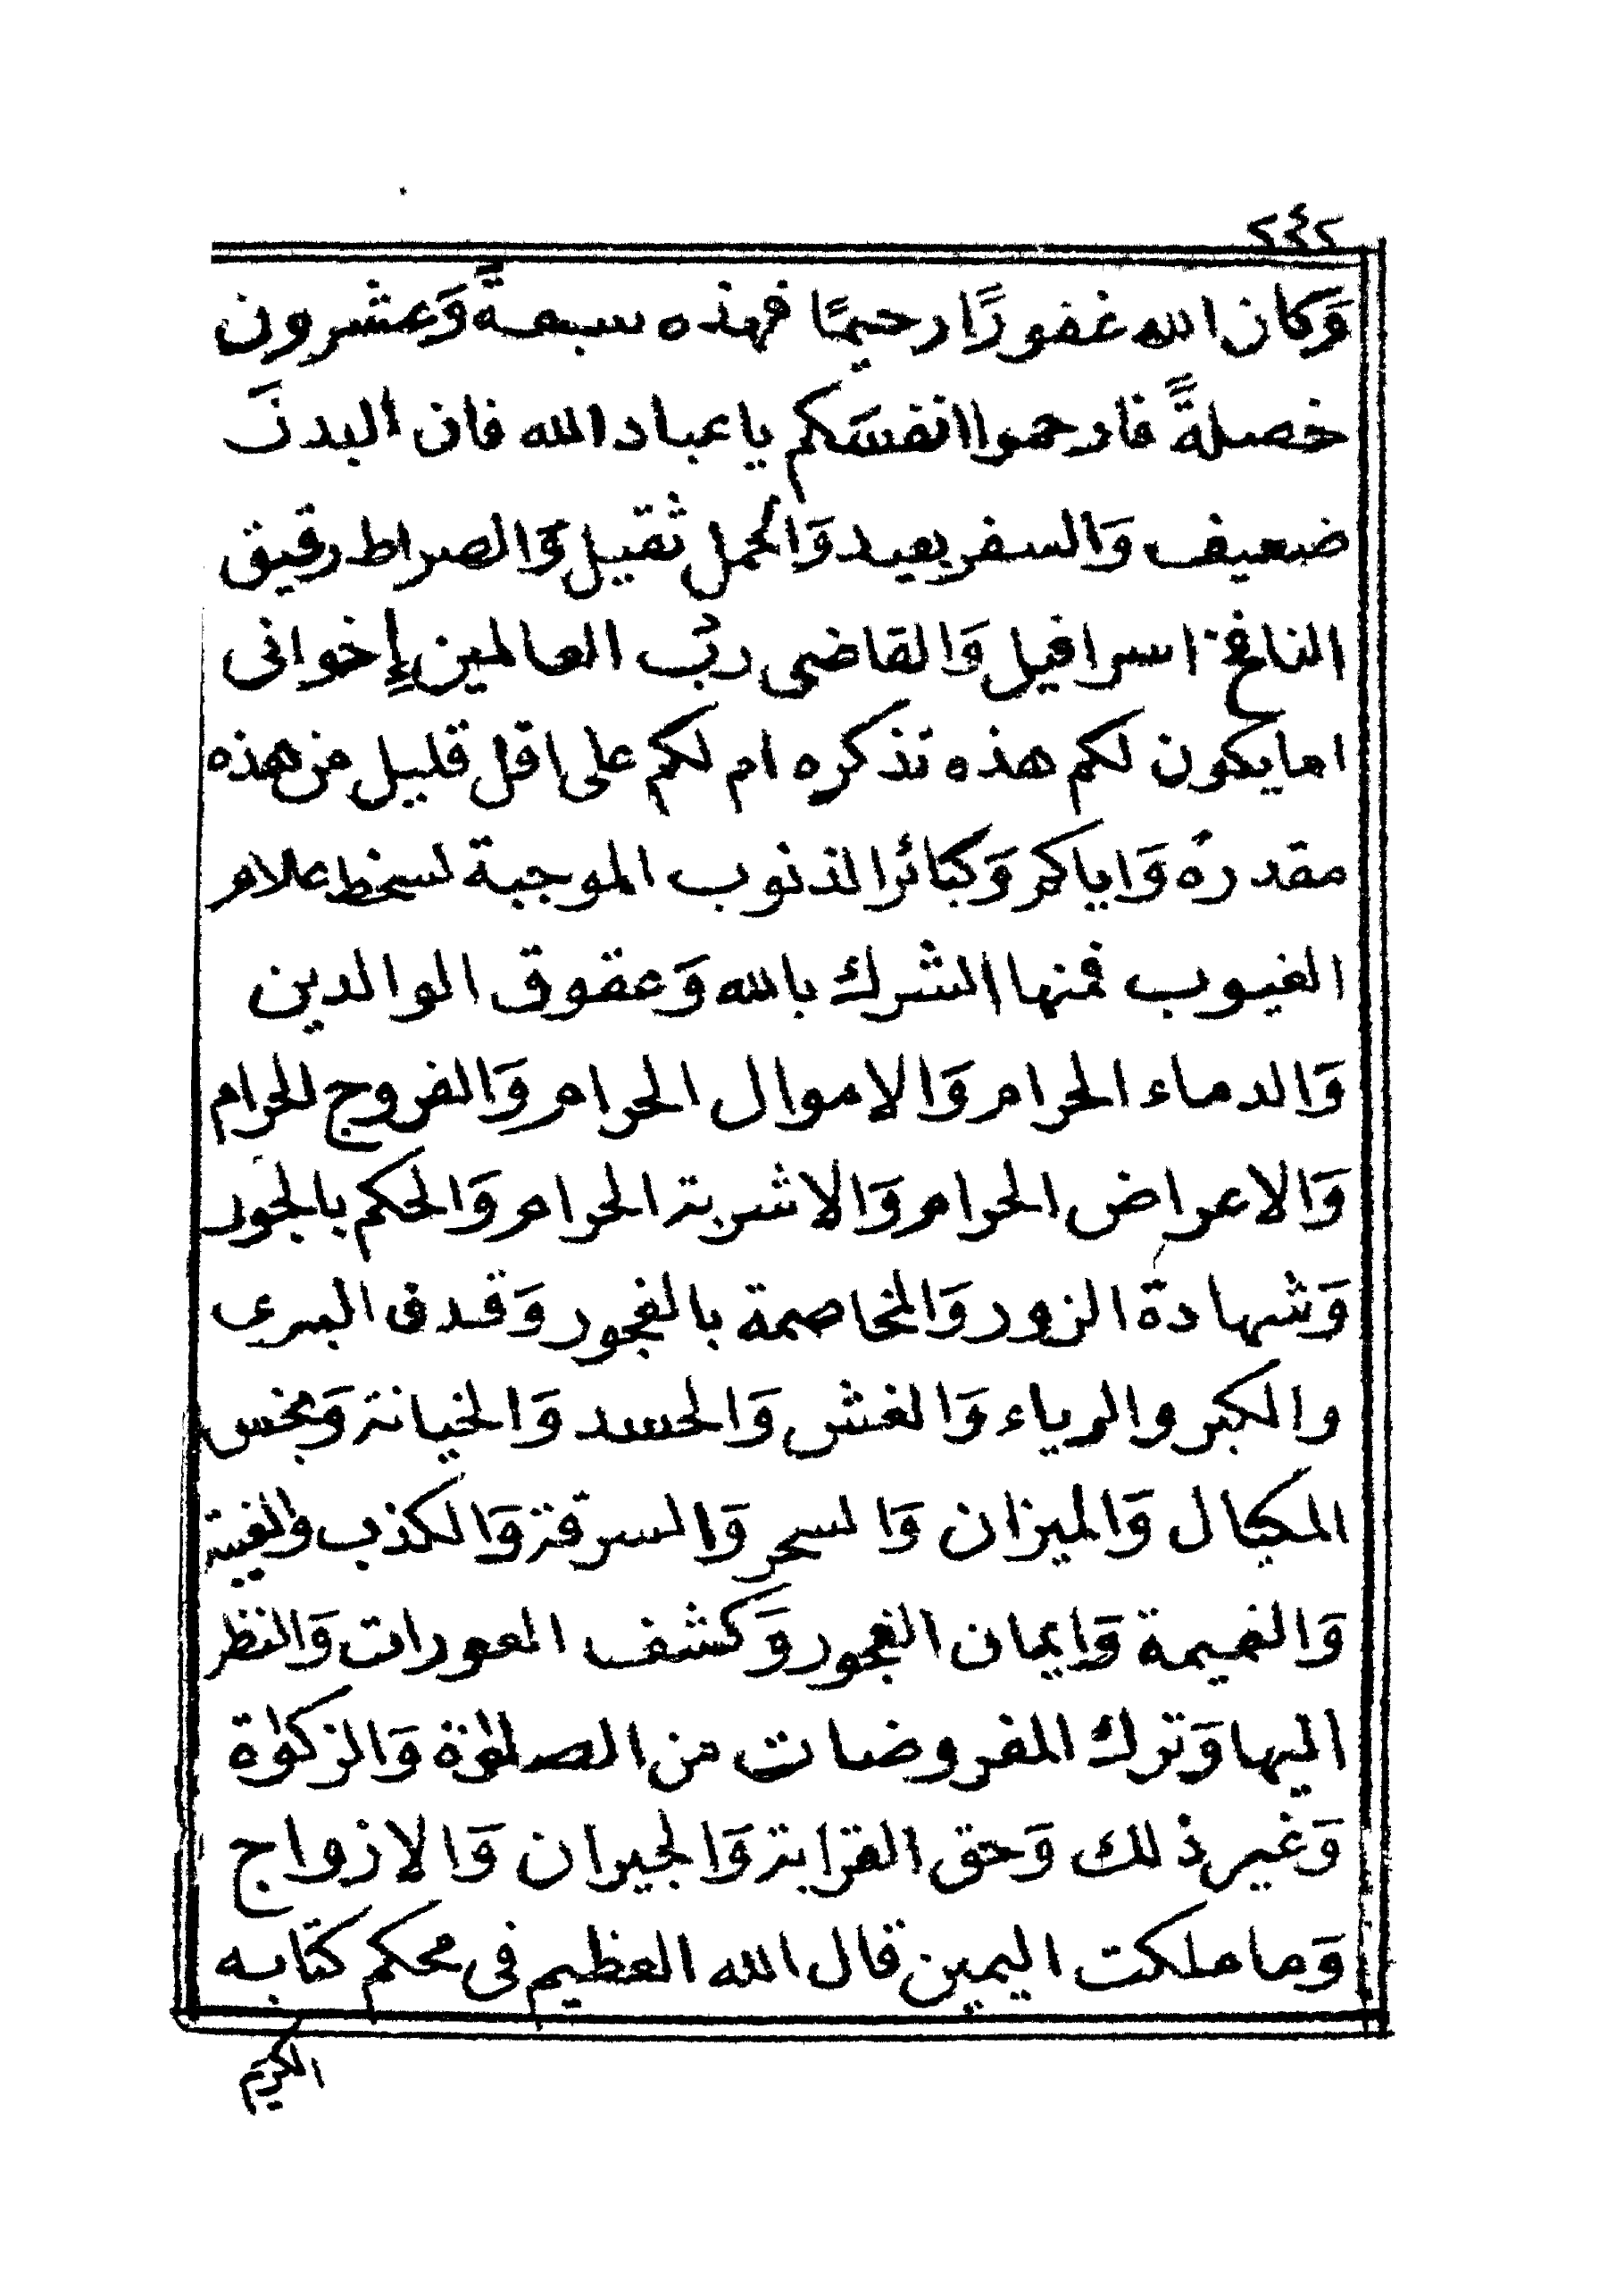 ٢٤٢
وَكان الله غفورًا رحيمًا فهذه سبعةً وَعشرون
خصلةً فارحموا انفسَكم ياعباد الله فان البدنَ
ضعيف وَالسفر بعيد وَالحمل ثقيل وَالصراط رقيق
النافخ اسرافيل وَالقاضى ربُ العالمين إخوانى
امايكون لكم هذه تذكره ام لكم على اقل قليل من هذه
مقدرهُ وَاياكم وَكبائر الذنوب الموجبة لسخط علام
الغيوب فمنها الشرك بالله وَعقوق الوالدين
وَالدماء الحرام وَالاموال الحرام وَالفروج الحرام
وَالاعراض الحرام وَالاشربة الحرام وَالحكم بالجور
وَشهادة الزور وَالمخاصمة بالفجور وَقذف البرى
والكبر والرياء وَالغش وَالحسد وَالخيانة وَبخس
المكيال وَالميزان وَالسحر وَالسرقة وَالكذب والغيبة
وَالنميمة وَايمان الفجور وَكشف العورات وَالنظر
اليها وَترك المفروضات من الصلوٰة وَالزكوٰة
وَغير ذلك وَحق القرابة وَالجيران وَالازواج
وَماملكت اليمين قال الله العظيم فى محكم كتابه
الكريم